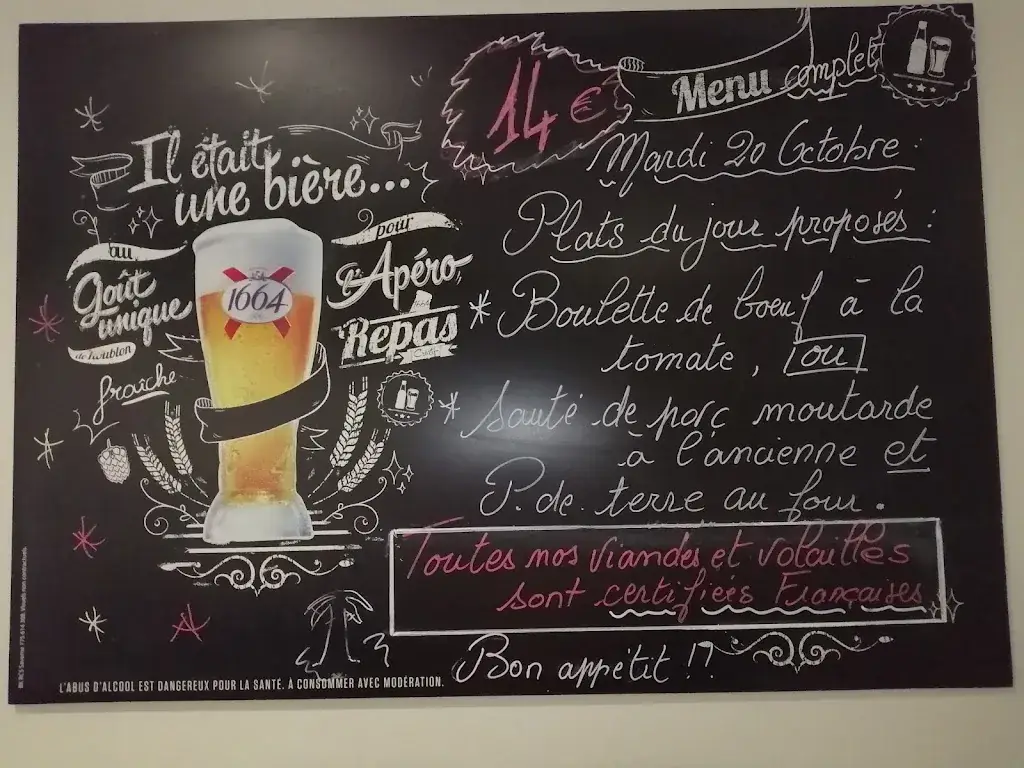 Il était
une bière...
au
Goût
unique
de houblon
fraîche
1664
pour
l'Apéro,
Repas
14 €
Menu complet
Mardi 20 Octobre :
Plats du jour proposés :
* Boulette de bœuf à la
tomate, ou
* Sauté de porc moutarde
a l'ancienne et
P. de terre au four.
Toutes nos viandes et volailles
sont certifiées Françaises
Bon appétit !!
L'ABUS D'ALCOOL EST DANGEREUX POUR LA SANTÉ. A CONSOMMER AVEC MODÉRATION.